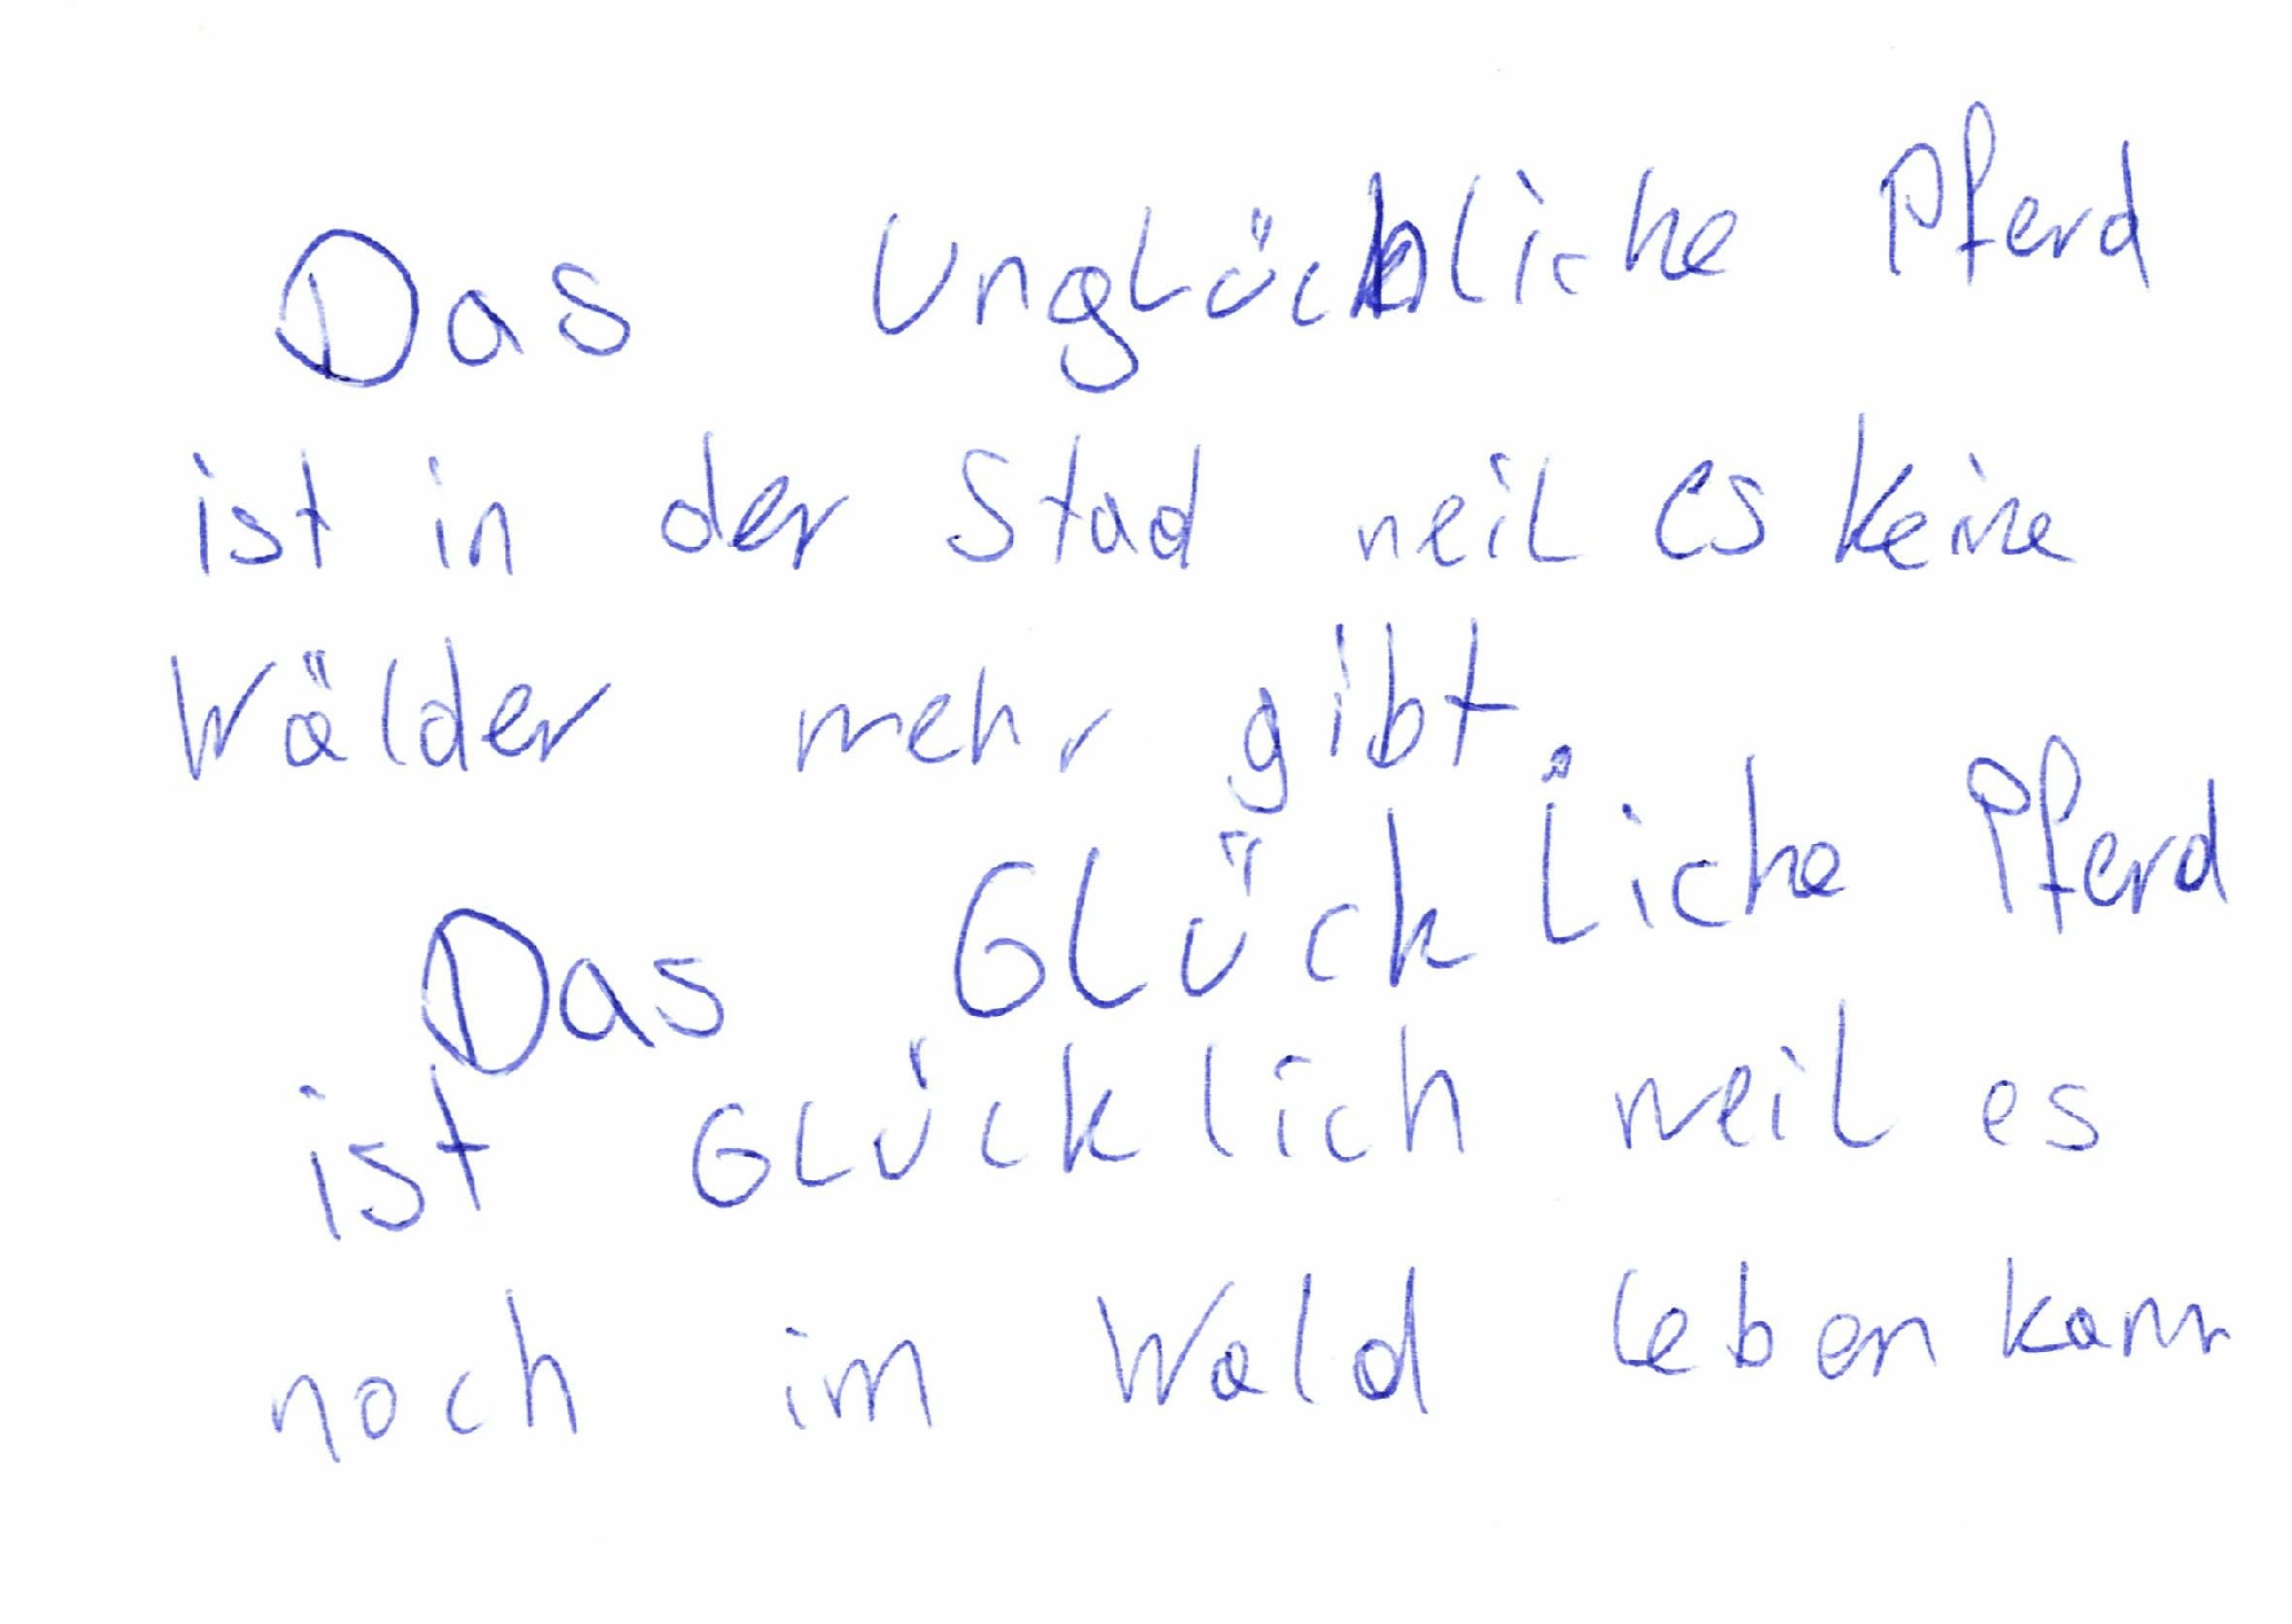 Das Unglückliche Pferd
ist in der Stad weil es keine
Wälder mehr gibt.
Das Glückliche Pferd
ist Glücklich weil es
noch im Wald leben kann